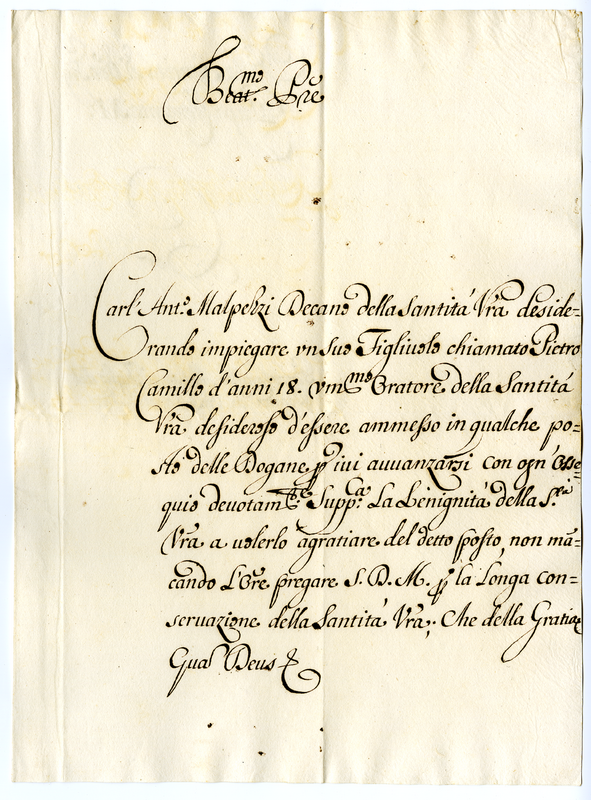 Beat.mo Pre
Carl' Ant.o Malpelzi Decano della Santità Vra deside=
rando impiegare vn suo Figliuolo chiamato Pietro
Camillo d'anni 18. vm.mo Oratore della Santità
Vra desideroso d'essere ammesso in qualche po=
sto delle Dogane p iui auuanzarsi con ogn' osse=
quio deuotam.te supp.ca La Benignità della S.tà
Vra a uolerlo agratiare del detto posto, non mã=
cando L'Ore pregare S. D. M. p la Longa con=
seruazione della Santità Vra, Che della Gratia
Quas Deus &